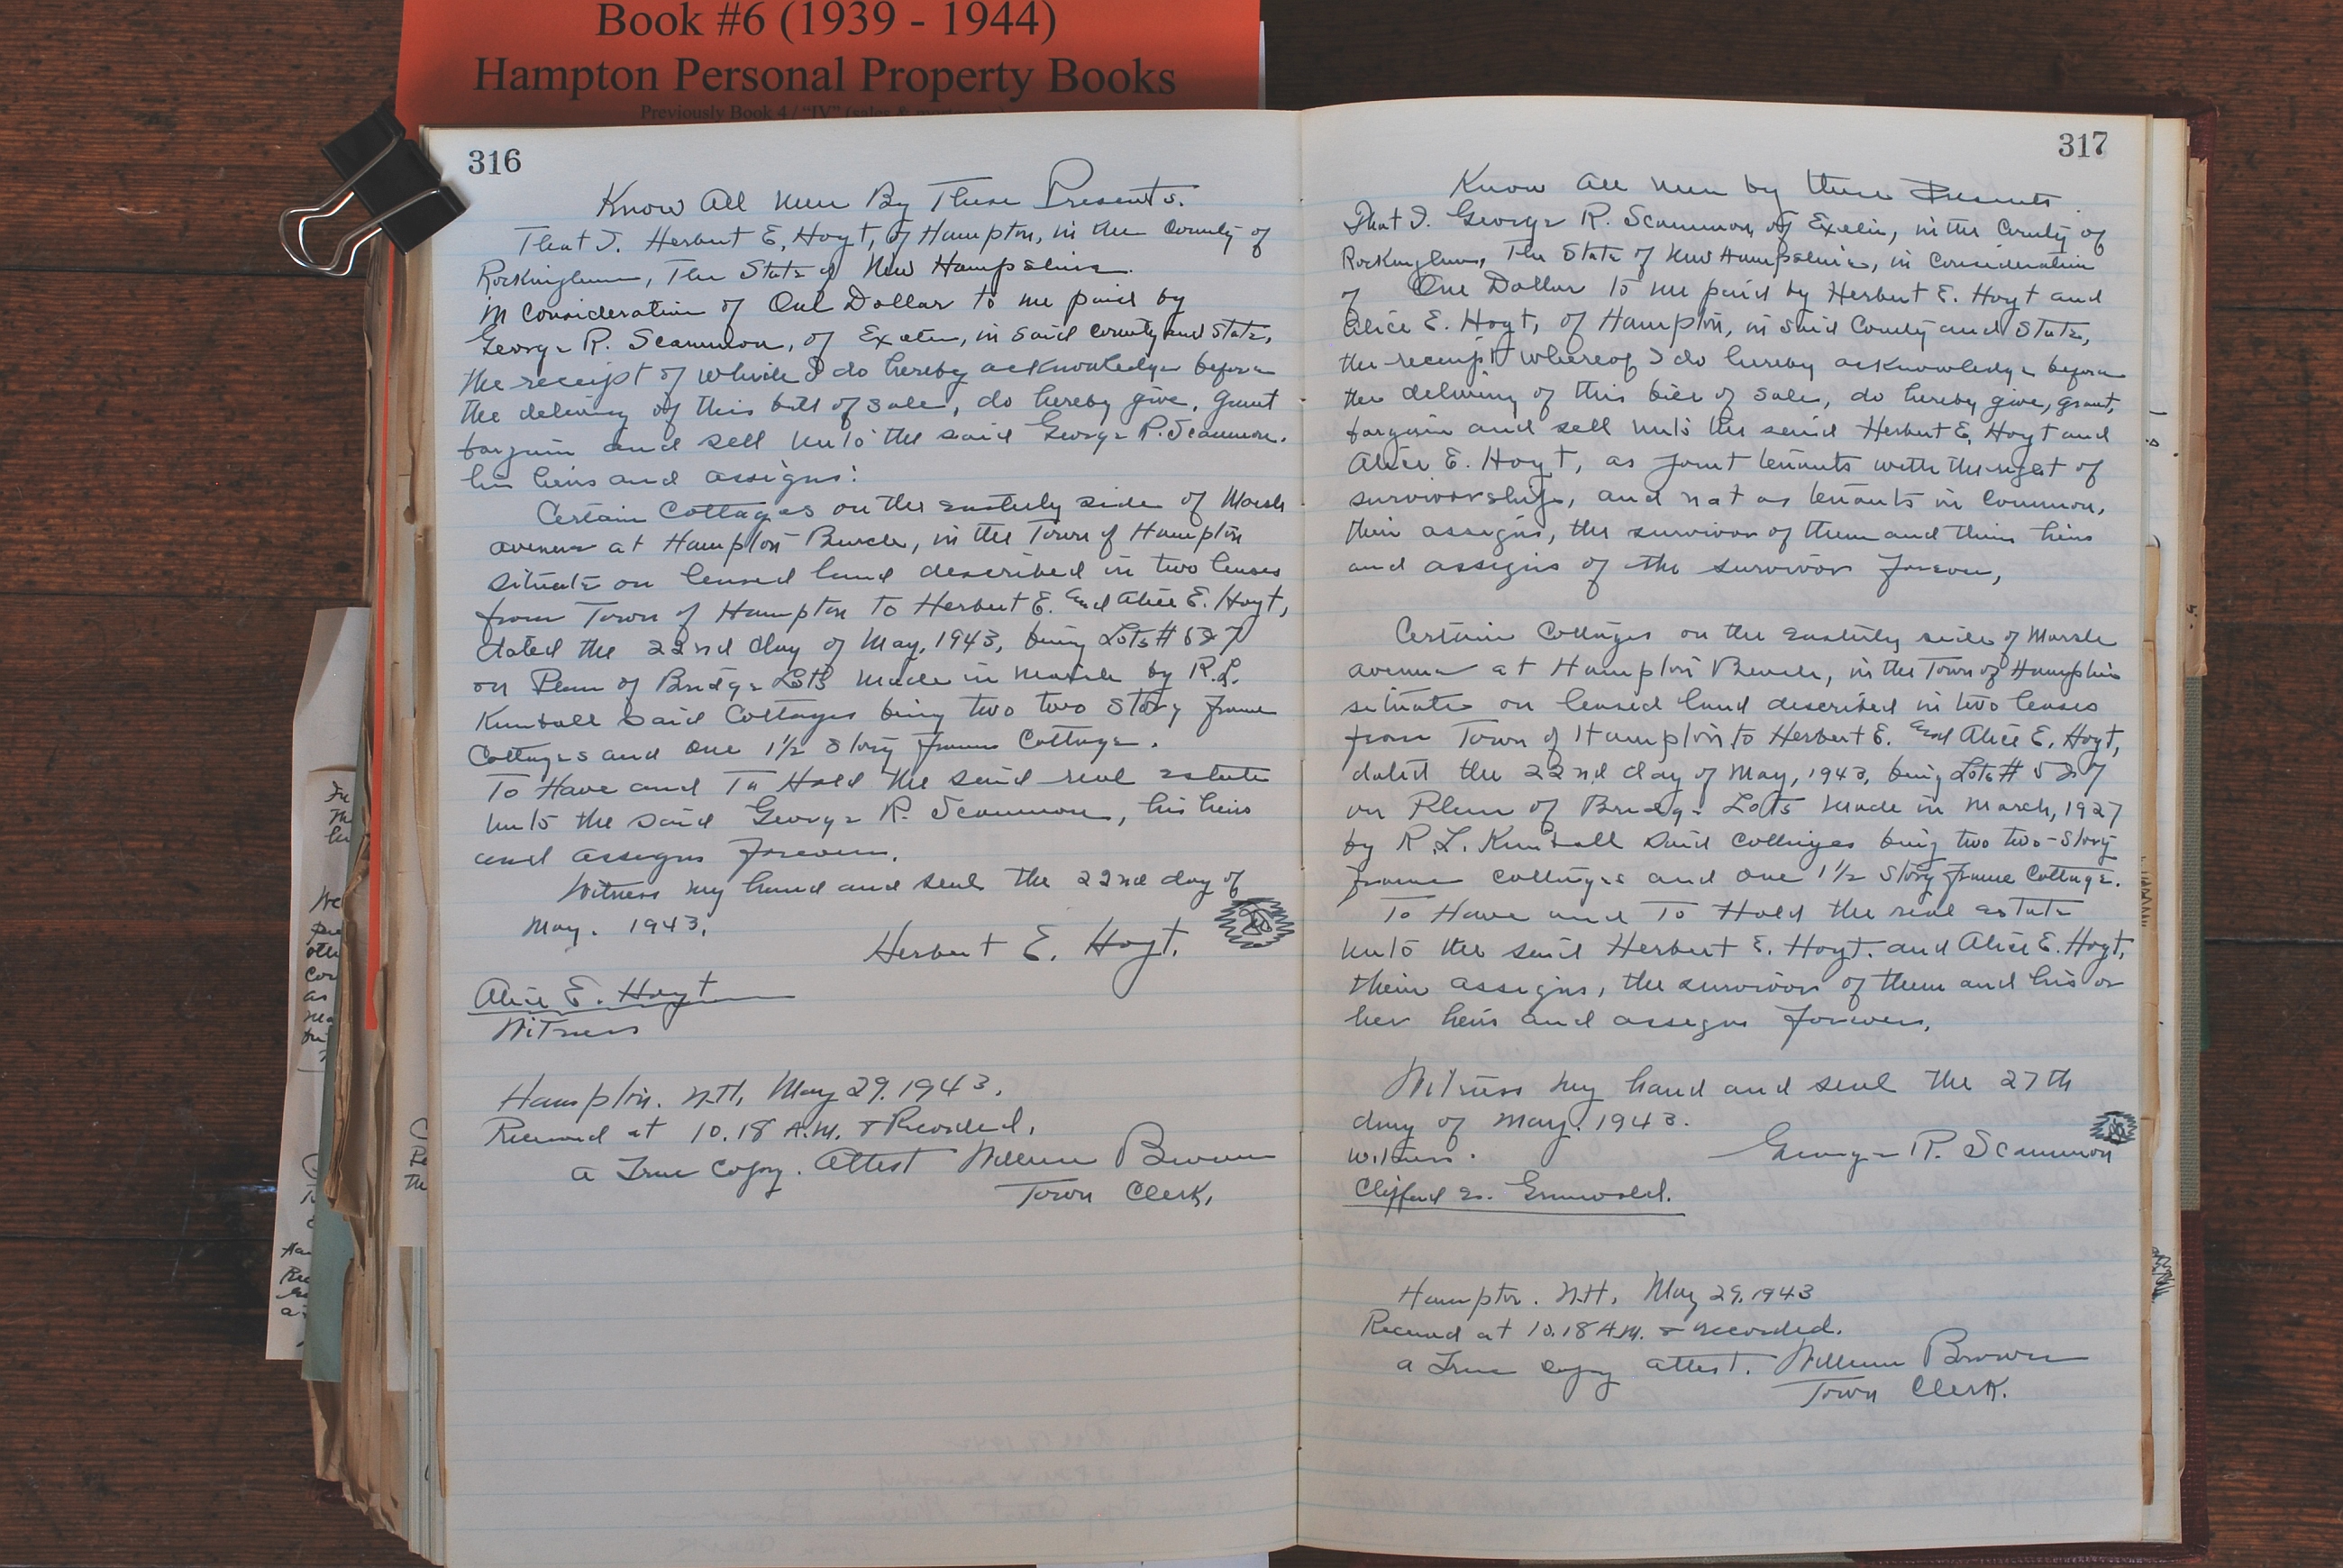 Book #6 (1939 - 1944)
Hampton Personal Property Books
Previously Book 4 / "IV" (sales & mortgages)
316
Know All Men By These Presents.
That I. Herbert E. Hoyt, of Hampton, in the County of
Rockingham, The State of New Hampshire.
in consideration of One Dollar to me paid by
George R. Scammon, of Exeter, in said County and State,
the receipt of which I do hereby acknowledge before
the delivery of this bill of sale, do hereby give, grant
bargain and sell unto the said George R. Scammon.
his heirs and assigns:
Certain Cottages on the easterly side of Marsh
avenue at Hampton Beach, in the Town of Hampton
situate on leased land described in two leases
from Town of Hampton to Herbert E. and Alice E. Hoyt,
dated the 22nd day of May, 1943, being Lots # 5 & 7
on Plan of Bridge Lots made in March by R.L.
Kimball said Cottages being two two story frame
Cottages and one 1½ story frame Cottage.
To Have and To Hold the said real estate
unto the said George R. Scammon, his heirs
and assigns forever.
Witness my hand and seal the 22nd day of
May. 1943.
Herbert E. Hoyt.
Alice E. Hoyt
Witness
Hampton. N.H, May 29. 1943.
Received at 10.18 A.M. & Recorded.
a True Copy. Attest William Brown
Town Clerk.
317
Know all men by these Presents
That I. George R. Scammon, of Exeter, in the County of
Rockingham, The State of New Hampshire, in consideration
of One Dollar to me paid by Herbert E. Hoyt and
Alice E. Hoyt, of Hampton, in said County and State,
the receipt whereof I do hereby acknowledge before
the delivery of this bill of sale, do hereby give, grant,
bargain and sell unto the said Herbert E. Hoyt and
Alice E. Hoyt, as joint tenants with the right of
survivorship, and not as tenants in common,
their assigns, the survivor of them and their heirs
and assigns of the survivor forever,
Certain Cottages on the easterly side of Marsh
avenue at Hampton Beach, in the Town of Hampton
situate on leased land described in two leases
from Town of Hampton to Herbert E. and Alice E. Hoyt,
dated the 22nd day of May, 1943, being Lots # 5 & 7
on Plan of Bridge Lots made in March, 1927
by R.L. Kimball said Cottages being two two-story
frame cottages and one 1½ story frame Cottage.
To Have and To Hold the real estate
unto the said Herbert E. Hoyt. and Alice E. Hoyt,
their assigns, the survivor of them and his or
her heirs and assigns forever.
Witness my hand and seal the 27th
day of May, 1943.
Witness.
George R. Scammon
Clifford Grunwald.
Hampton. N.H, May 29, 1943
Received at 10.18 A.M. & recorded.
a True copy attest. William Brown
Town Clerk.